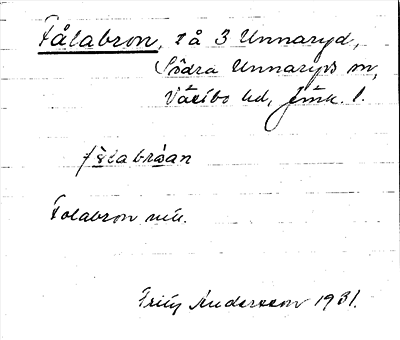 Fålabron, på 3 Unnaryd,
Södra Unnaryds sn,
Västbo hd, Jönk. l.
fålabróan
Folabron
Fritz Andersson 1931.